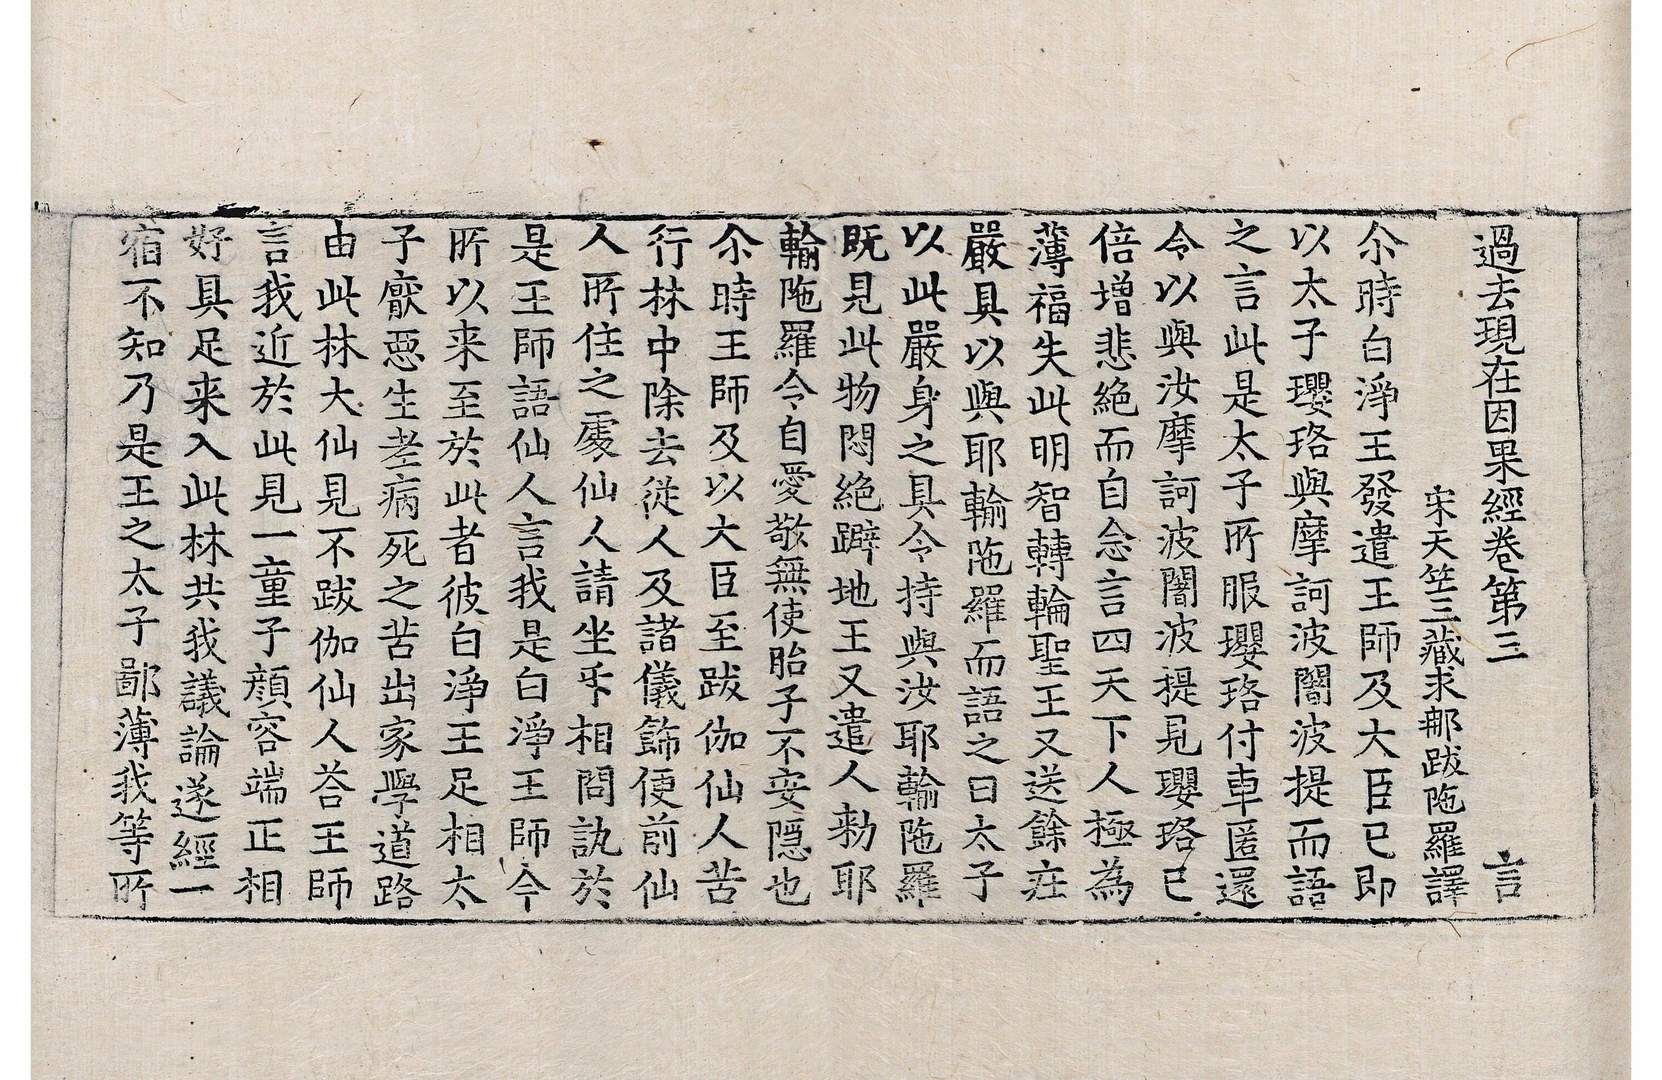 過去現在因果經卷第三 言
宋天竺三藏求那跋陁羅譯
尒時白淨王發遣王師及大臣已即
以太子瓔珞與摩訶波闍波提而語
之言此是太子所服瓔珞付車匿還
令以與汝摩訶波闍波提見瓔珞已
倍增悲絶而自念言四天下人極為
薄福失此明智轉輪聖王又送餘莊
嚴具以與耶輸陁羅而語之曰太子
以此嚴身之具令持與汝耶輸陁羅
既見此物悶絶躃地王又遣人勑耶
輸陁羅令自愛敬無使胎子不安隱也
尒時王師及以大臣至跋伽仙人苦
行林中除去從人及諸儀飾便前仙
人所住之處仙人請坐乎相問訊於
是王師語仙人言我是白淨王師今
所以来至於此者彼白淨王足相太
子猒惡生老病死之苦出家學道路
由此林大仙見不跋伽仙人荅王師
言我近於此見一童子顔容端正相
好具足来入此林共我議論遂經一
宿不知乃是王之太子鄙薄我等所